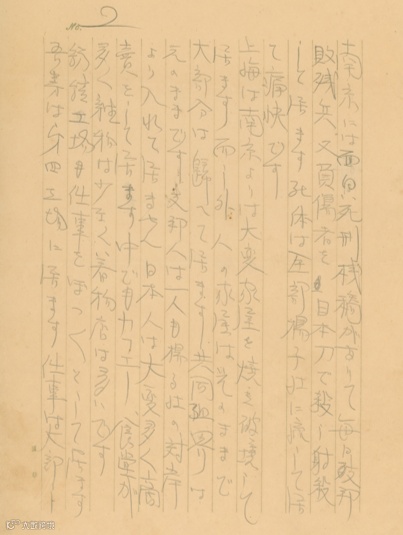 No. 2
南京には面白い死刑桟橋があつて毎日支那
敗残兵又負傷者を日本刀で殺し射殺
して居ます死体は全部揚子江に流して居
て痛快です
上海は南京よりは大変家屋を焼き破壊して
居ます而し外人の家屋は元のままで
大部分は歸つて居ます共同租界は
元のままです支那人は一人も楊子江の対岸
より入れて居ません日本人は大変多く商
賣をして居ます中でもカフエー食堂が
多く雑物は少なく着物店は多いです
鉄鐘工場も仕事をぼつくそうして居ます
吾業は第四工場に居ます仕事は大部